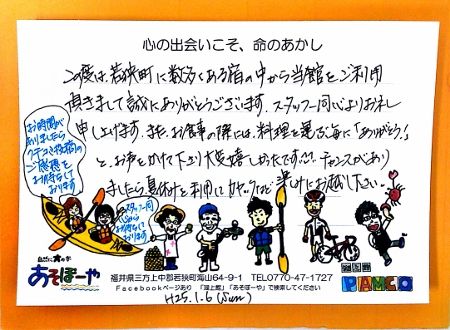 心の出会いこそ、命のあかし
この度は、若狭町に数多くある宿の中から当館をご利用
頂きまして誠にありがとうございます。スタッフ一同心よりお礼
申し上げます。また、お食事の際には、料理を運ぶ毎に「ありがとう!」
と、お声をかけて下さり大変嬉しかったです。チャンスがあり
ましたら夏休みを利用してカヤックなど楽しみにお越し下さい。
お時間が
ありましたら
クチコミ投稿の
ご感想を
お待ちして
おります
スタッフ同
心から
お待ちして
おります
あそぼーや
福井県三方上中郡若狭町海山64-9-1 TEL0770-47-1727
Facebookページあり 「湖上館」「あそぼーや」で検索してください
湖上館
PAMCO
H25.1.6 (Sun)